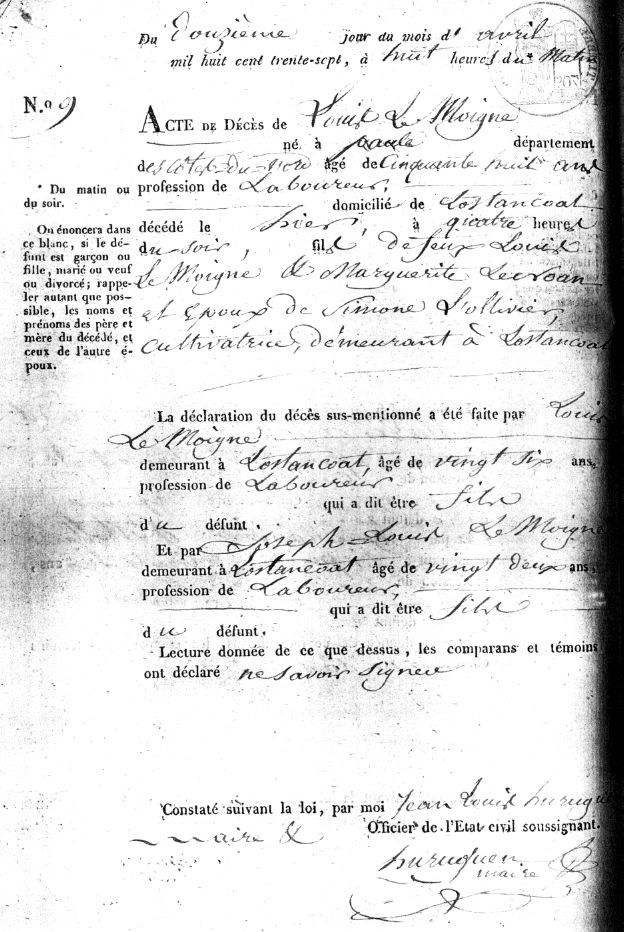 Du Douzième jour du mois d' avril
mil huit cent trente-sept, à huit heures du * Matin
N.º 9
ACTE DE DÉCÈS de Louis Le Moigne
né à paule département
des côtes-du-nord âgé de Cinquante huit ans
profession de Laboureur,
domicilié de Lostancoat
décédé le hier, à quatre heures
du soir, fils de feux Louis
Le Moigne & Marguerite
et Epoux de Simone L'ollivier,
cultivatrice, démeurant à Lostancoat
* Du matin ou
du soir.
On énoncera dans
ce blanc, si le dé-
funt est garçon ou
fille, marié ou veuf
ou divorcé; rappe-
ler autant que pos-
sible, les noms et
prénoms des père et
mère du décédé, et
ceux de l'autre é-
poux.
La déclaration du décès sus-mentionné a été faite par Louis
Le Moigne
demeurant à Lostancoat, âgé de vingt six ans,
profession de Laboureur
qui a dit être fils
d u défunt.
Et par Joseph-Louis Le Moigne
demeurant à Lostancoat âgé de vingt deux ans,
profession de Laboureur,
qui a dit être fils
d u défunt.
Lecture donnée de ce que dessus, les comparans et témoins
ont déclaré ne savoir signer
Constaté suivant la loi, par moi Jean Louis
maire & Officier de l'Etat civil soussignant.
maire